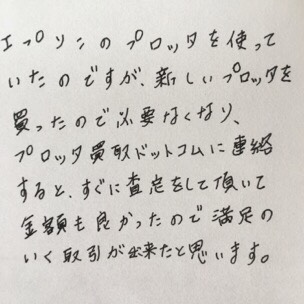 エプソンのプロッタを使って
いたのですが、新しいプロッタを
買ったので必要なくなり、
プロッタ買取ドットコムに連絡
すると、すぐに査定をして頂いて
金額も良かったので満足の
いく取引が出来たと思います。